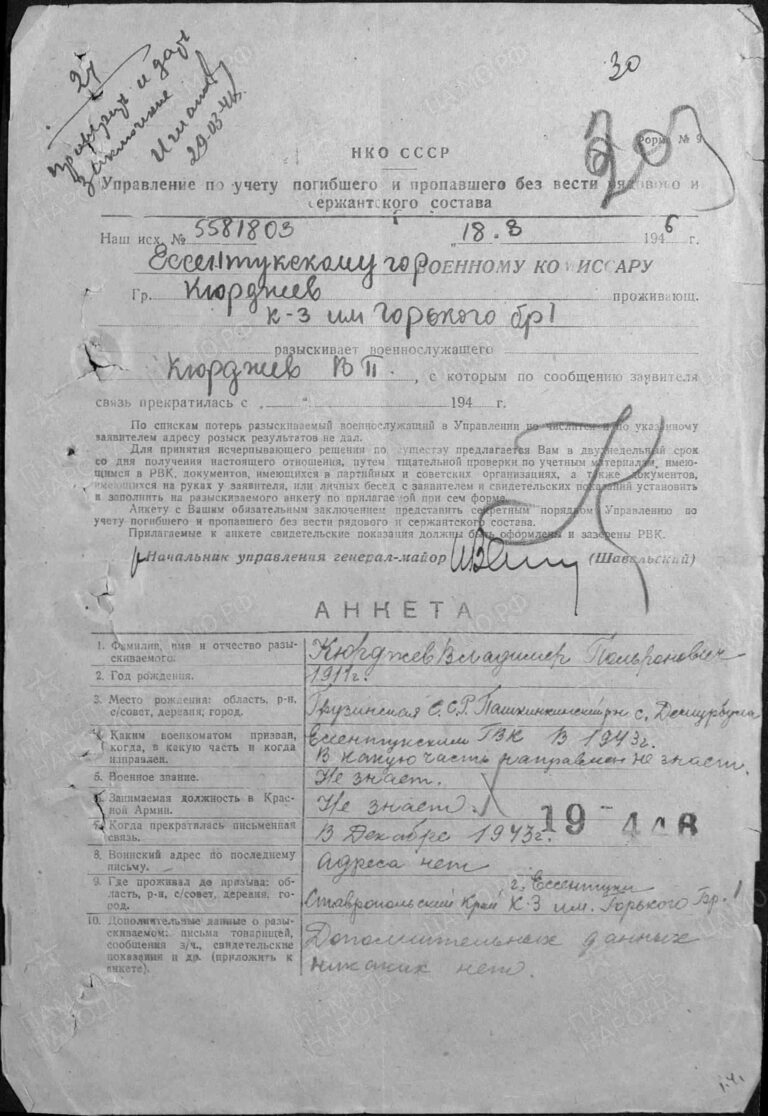 27
проверить и дать
заключение
29.03.46.
30
Форма № 9
20
НКО СССР
Управление по учету погибшего и пропавшего без вести рядового и
сержантского состава
Наш исх. № 5581803 „ 18.3 1946 г.
Ессентукскому горвоенному комиссару
Гр. Кюрджев проживающ.
к-з им Горького бр 1
разыскивает военнослужащего
Кюрджев В П., с которым по сообщению заявителя
связь прекратилась с „ “ 194 г.
По спискам потерь разыскиваемый военнослужащий в Управлении не числится и по указанному
заявителем адресу розыск результатов не дал.
Для принятия исчерпывающего решения по существу предлагается Вам в двухнедельный срок
со дня получения настоящего отношения, путем тщательной проверки по учетным материалам, имею-
щимся в РВК, документов, имеющихся в партийных и советских организациях, а также документов,
имеющихся на руках у заявителя, или личных бесед с заявителем и свидетельских показаний установить
и заполнить на разыскиваемого анкету по прилагаемой при сем форме.
Анкету с Вашим обязательным заключением представить секретным порядком Управлению по
учету погибшего и пропавшего без вести рядового и сержантского состава.
Прилагаемые к анкете свидетельские показания должны быть оформлены и заверены РВК.
Начальник управления генерал-майор (Шавельский)
АНКЕТА
1. Фамилия, имя и отчество разы-
скиваемого.
Кюрджев Владимир Польронович
2. Год рождения.
1911г.
3. Место рождения: область, р-н,
с/совет, деревня, город.
Грузинская С.С.Р. Башкинкинский рн с.
4. Каким военкоматом призван,
когда, в какую часть и когда
направлен.
Ессентукским ГВК В 1943г.
В какую часть направлен не знает.
5. Военное звание.
Не знает.
6. Занимаемая должность в Крас-
ной Армии.
Не знает.
7. Когда прекратилась письменная
связь.
В Декабре 1943г.
19 446
8. Воинский адрес по последнему
письму.
Адреса нет
9. Где проживал до призыва: об-
ласть, р-н, с/совет, деревня, го-
род.
г. Ессентуки
Ставропольский Край К-З им. Горького Бр. 1
10. Дополнительные данные о разы-
скиваемом: письма товарищей,
сообщения з/ч., свидетельские
показания и др. (приложить к
анкете).
Дополнительных данных
никаких нет.